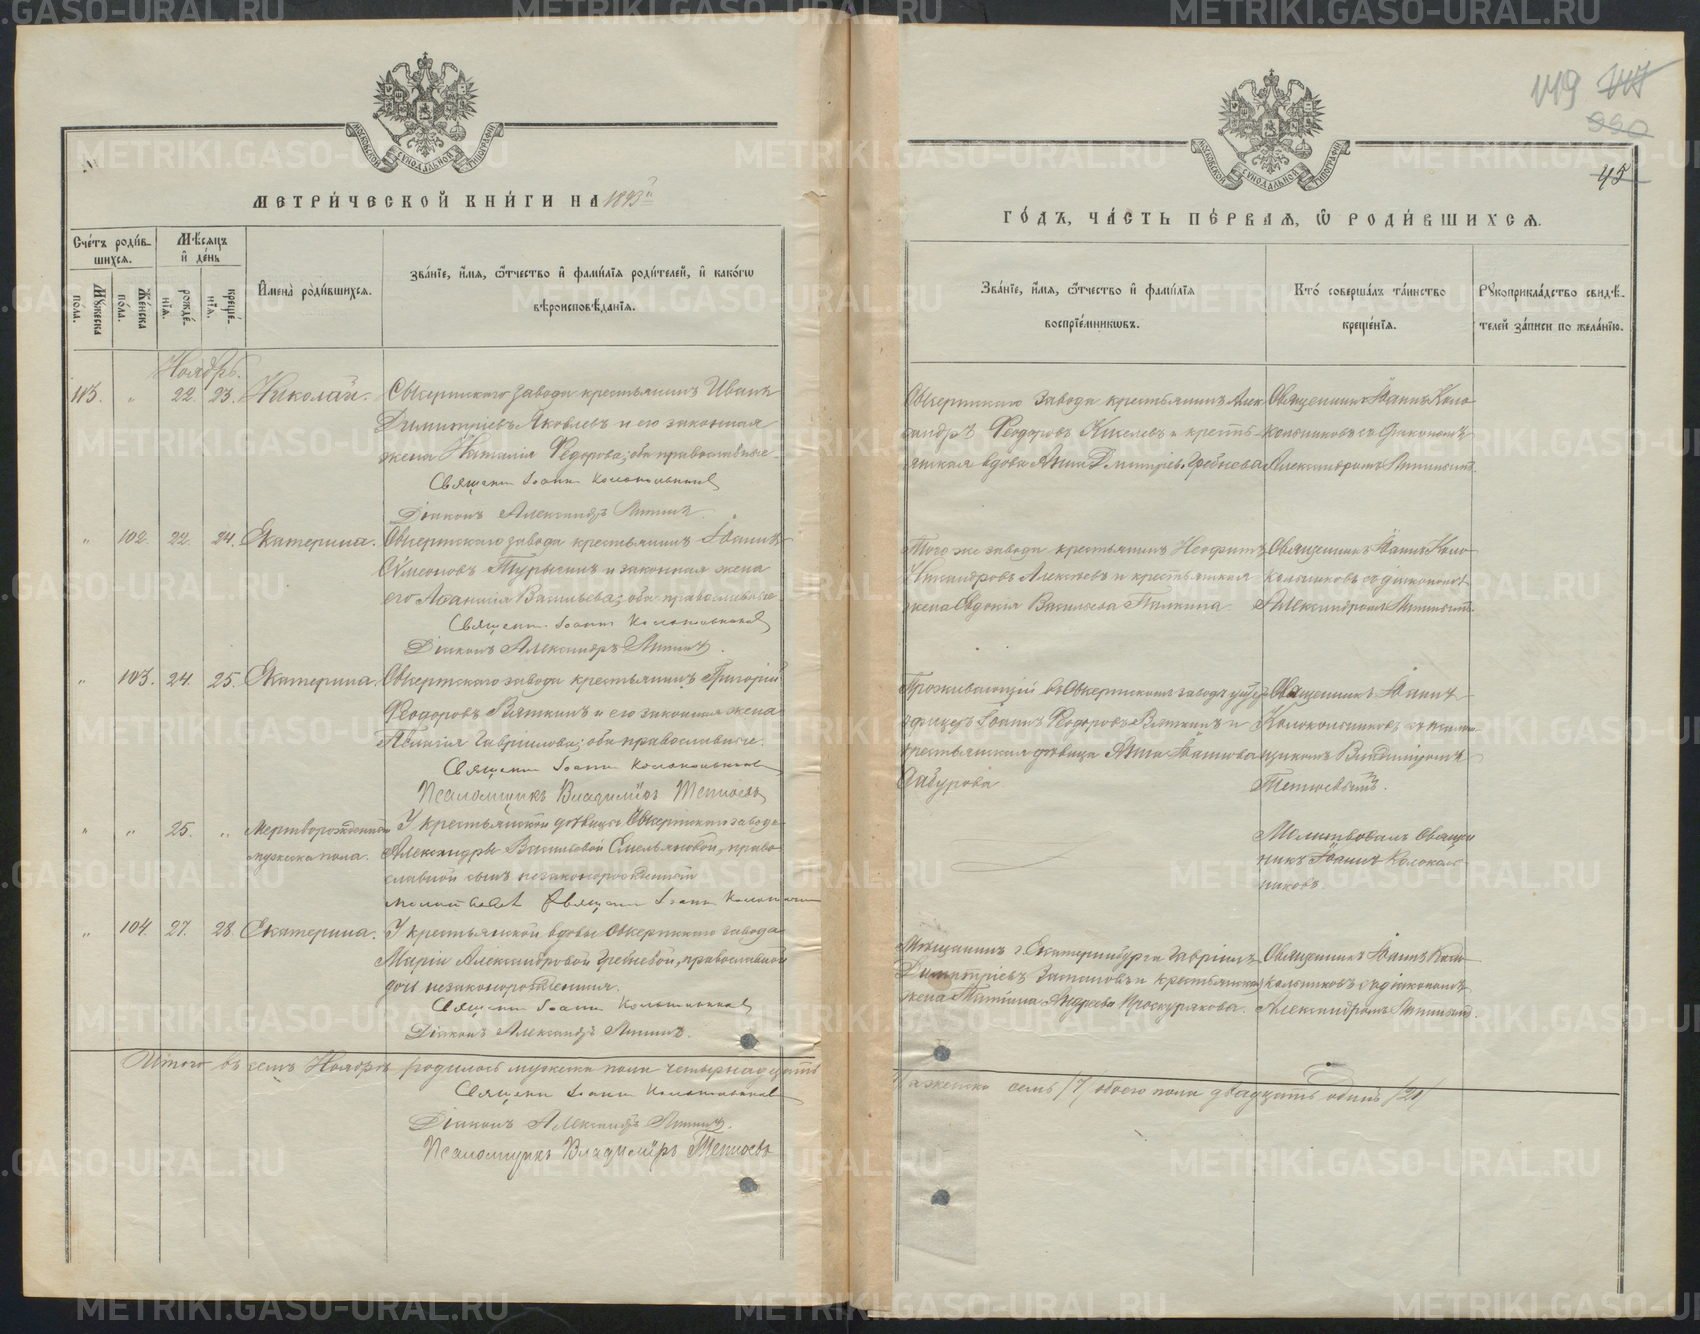 149 147
990
45
МОСКОВСКОЙ СУНОДАЛЬНОЙ ТИПОГРАФІИ
МЕТРИ́ЧЕСКОЙ КНИ́ГИ НА 1895 й
Сче́тъ роди́вшихся.
Мꙋ́жеска по́ла.
Же́нска по́ла.
Мѣ́сяцъ и҆ де́нь
рожде́нїя.
креще́нїя.
И҆мена̀ роди́вшихся.
Зва́нїе, и҆́мя, ѻ҆́тчество и҆ фами́лїя роди́телей, и҆ како́гѡ
вѣроисповѣ́данїя.
Ноябрь.
113. " 22. 23. Николай.
Сысертскаго завода крестьянинъ Иванъ
Димитріевъ Яковлевъ и его законная
жена Наталія Ѳедорова; оба православные
Священн. Іоаннъ Колокольниковъ
Діаконъ Александръ
" 102. 22. 24. Екатерина.
Сысертскаго завода крестьянинъ Іоаннъ
Сѵмеоновъ Турыгинъ и законная жена
его Аѳанасія Васильева; оба православные
Священн. Іоаннъ Колокольниковъ
Діаконъ Александръ
" 103. 24. 25. Екатерина.
Сысертскаго завода крестьянинъ Григорій
Ѳеодоровъ Вяткинъ и его законная жена
Пелагія Гавріилова; оба православные.
Священн. Іоаннъ Колокольниковъ
Псаломщикъ Владиміръ
" " 25. " Мертворожденный
мужеска пола.
У крестьянской дѣвицы Сысертскаго завода
Александры Васильевой Емельяновой, право
славной сынъ незаконнорожденный
Священн. Іоаннъ
" 104. 27. 28. Екатерина.
У крестьянской вдовы Сысертскаго завода
Маріи Александровой Гребневой, православной
дочь незаконнорожденная.
Священн. Іоаннъ Колокольниковъ
Діаконъ Александръ
Итого въ семъ Ноябрѣ родилось мужеска пола четырнадцать
Священн. Іоаннъ Колокольниковъ
Діаконъ Александръ
Псаломщикъ Владиміръ
МОСКОВСКОЙ СУНОДАЛЬНОЙ ТИПОГРАФІИ
ГО́ДЪ, ЧА́СТЬ ПЕ́РВАЯ, Ѡ҆ РОДИ́ВШИХСЯ.
Зва́нїе, и҆́мя, ѻ҆́тчество и҆ фами́лїя
воспрїе́мникѡвъ.
Кто̀ соверша́лъ та́инство
креще́нїя.
Рꙋкоприкла́дство свидѣ́телей за́писи по жела́нїю.
Сысертскаго завода крестьянинъ Алек
сандръ Ѳеодоровъ и кресть
янская вдова Анна Дмитріев. Гребнева
Священникъ Іоаннъ Коло
кольниковъ съ діакономъ
Александромъ
Того же завода крестьянинъ Неофитъ
Никандровъ Алексѣевъ и крестьянская
жена Евдокія Васильева Палкина
Священникъ Іоаннъ Коло
кольниковъ съ діакономъ
Александромъ
Проживающій въ Сысертскомъ заводѣ унтер
офицеръ Іоаннъ Ѳеодоровъ Вяткинъ и
крестьянская дѣвица Анна Іоаннова
Сабурова
Священникъ Іоаннъ
Колокольниковъ съ псалом
щикомъ Владиміромъ
Молитвовалъ Священ
никъ Іоаннъ Колоколь
никовъ.
Мѣщанинъ г. Екатеринбурга Гавріилъ
Димитріевъ и крестьянская
жена Татіана Андреева Проскурякова.
Священникъ Іоаннъ Коло
кольниковъ съ діакономъ
Александромъ
а женска семь /7/ обоего пола двадцать одинъ /21/
METRIKI.GASO-URAL.RU